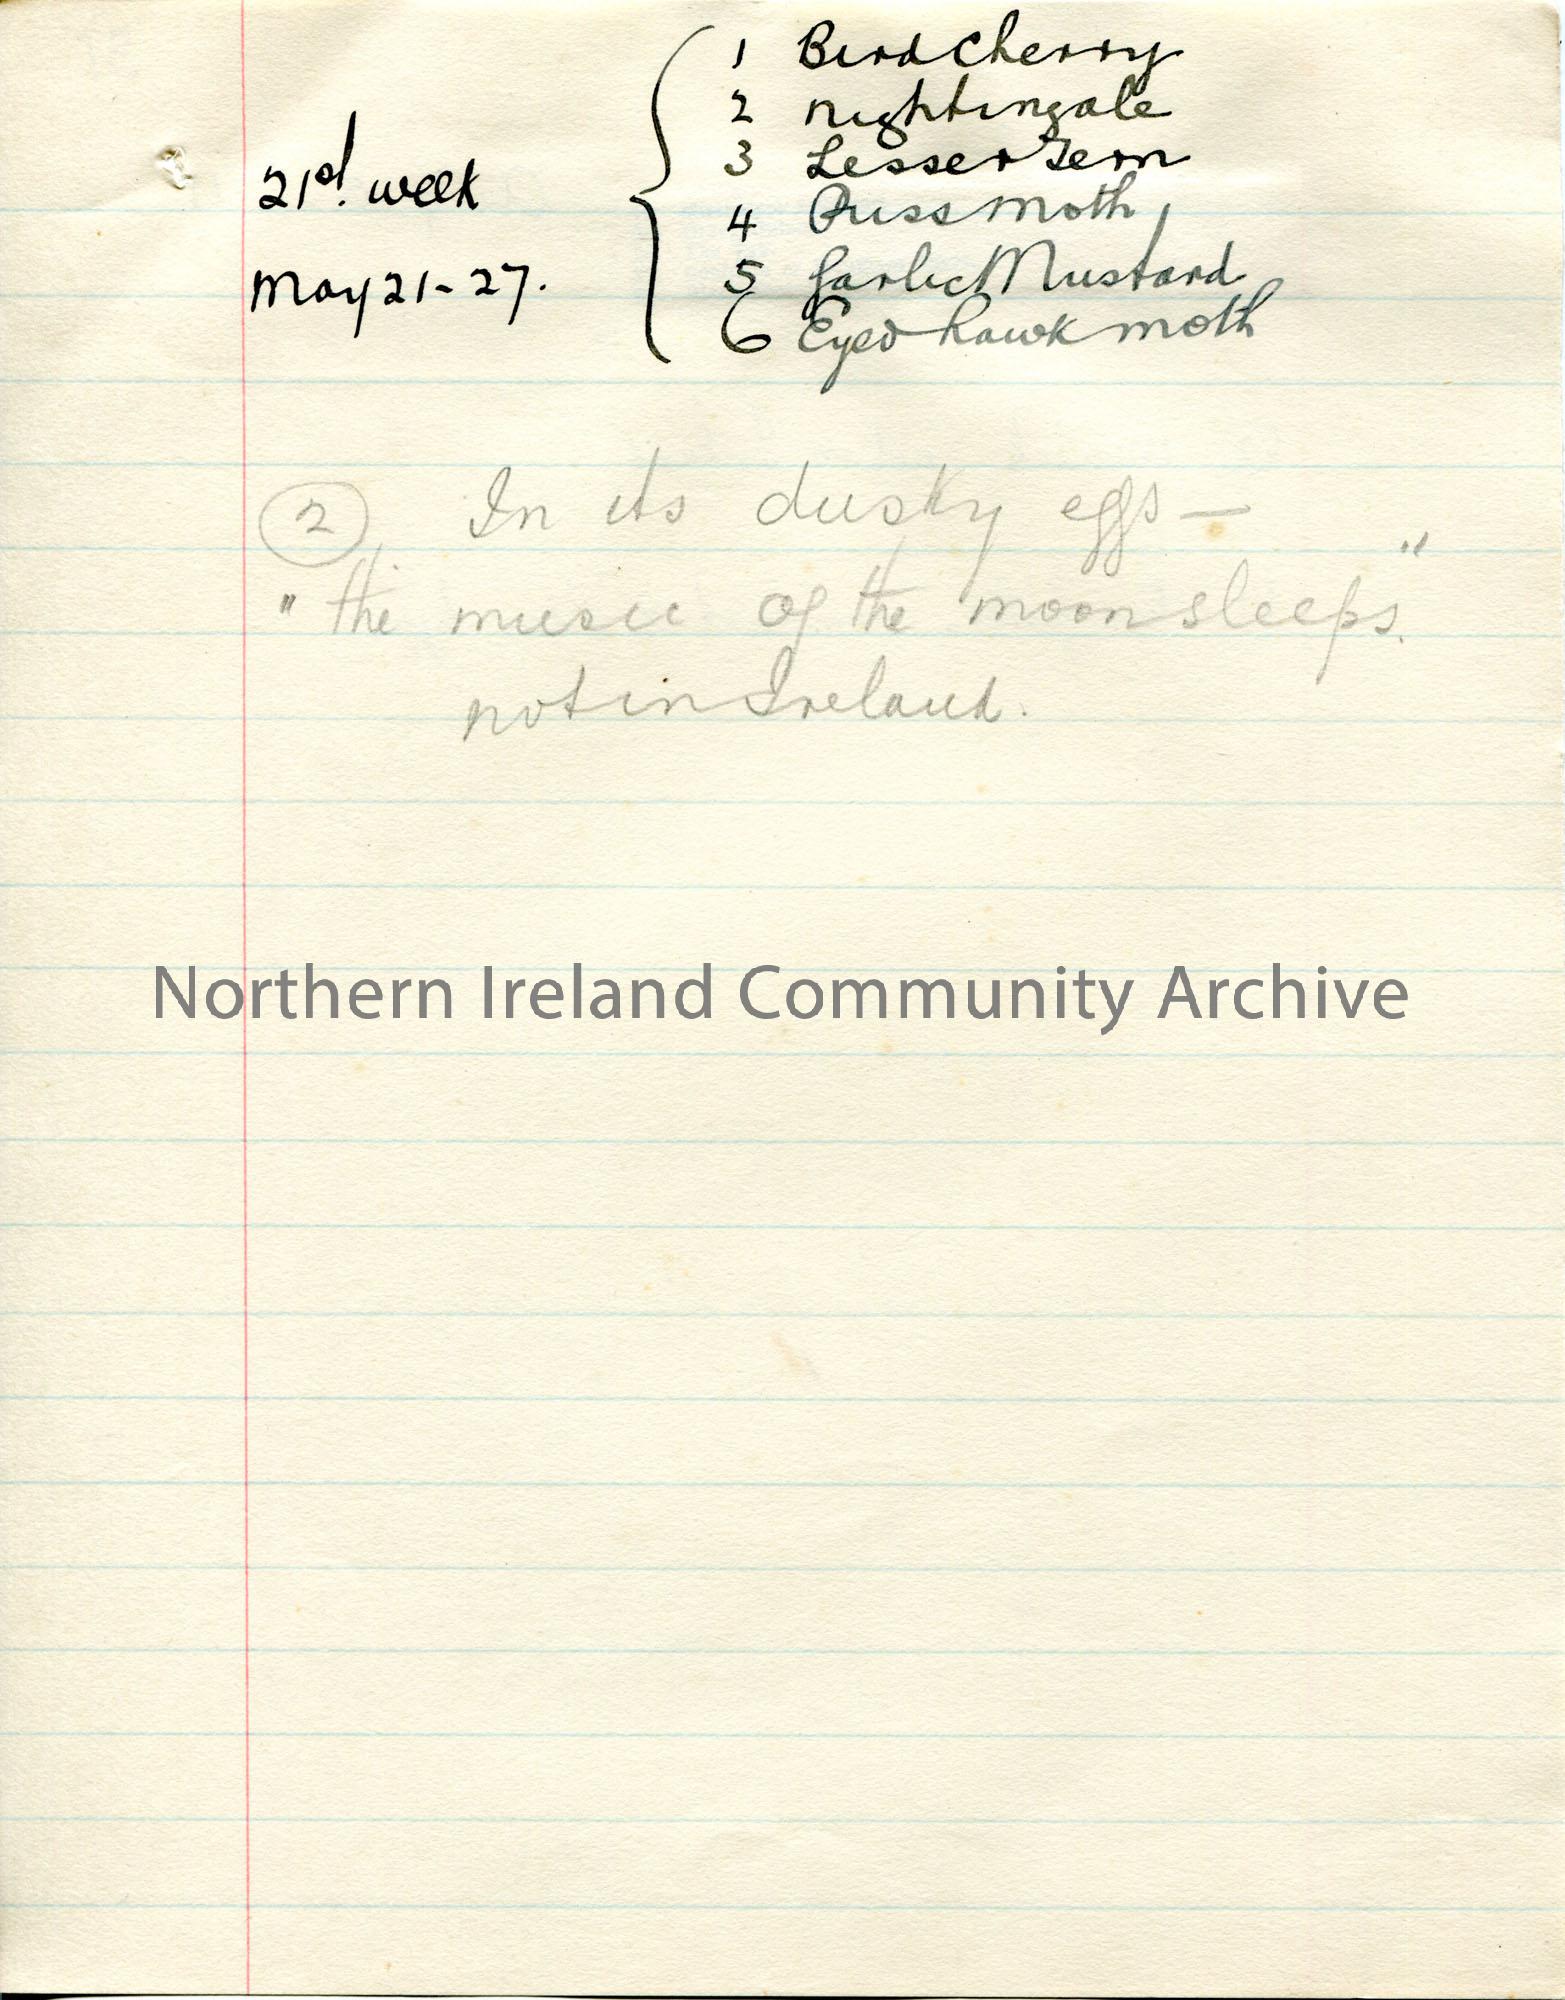 1 Bird Cherry
2 Nightingale
3 Lesser Tern
21st. week
4 Puss Moth
5 Garlic Mustard
May 21-27.
6 Eyed hawk moth
2 In its dusky eggs —
"the music of the moon sleeps."
not in Ireland.
Northern Ireland Community Archive